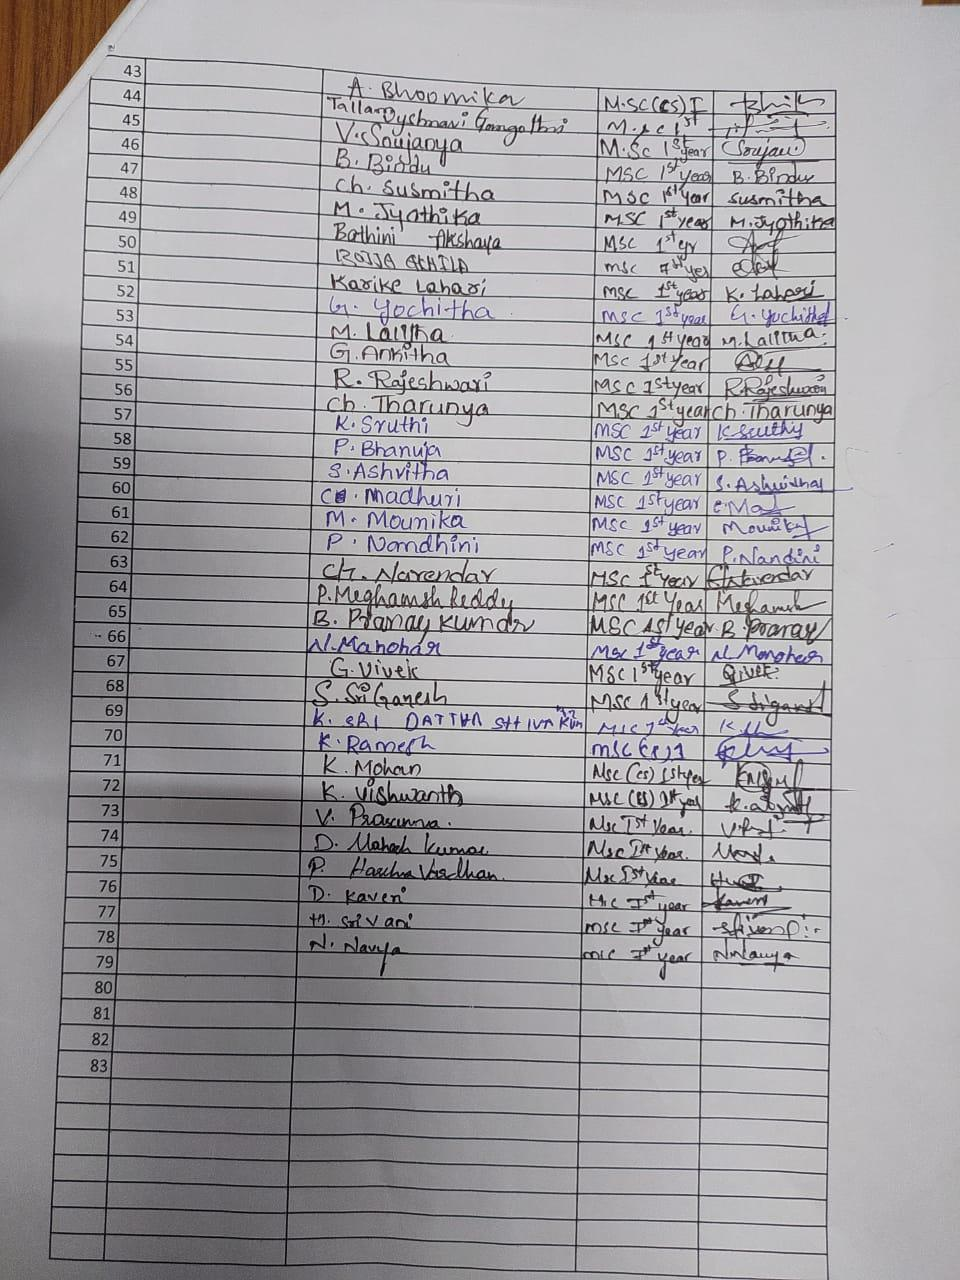 43
44 A. Bhoomika M.SC(CS) I
45 Tallam M.sc 1st
46 V. Soujanya M.Sc 1st year (Soujan
47 B. Bindu MSC 1st year B. Bindu
48 Ch. Susmitha MSC 1st year susmitha
49 M. Jyothika MSC 1st year M. Jyothika
50 Bathini Akshaya MSC 1st yr
51 BOJJA AKHILA msc 1st yer
52 Karike Lahari MSC 1st year K. Lahari
53 G. Yochitha MSC 1st year G. Yochitha
54 M. Lalitha MSC 1st year M. Lalitha.
55 G. Ankitha MSC 1st year
56 R. Rajeshwari MSC 1st year R. Rajeshwari
57 Ch. Tharunya MSC 1st year Ch. Tharunya
58 K. Sruthi MSC 1st year K. Sruthy
59 P. Bhanuja MSC 1st year P.
60 S. Ashvitha MSC 1st year S. Ashvitha
61 C. Madhuri MSC 1st year
62 M. Mounika MSC 1st year Mounika
63 P. Nandhini MSC 1st year P. Nandini
64 Ch. Narendar MSC 1st year Ch. Narendar
65 P. Meghamsh Reddy MSC 1st Year Meghamsh
66 B. Pranay Kumar MSC 1st year B. Pranay
67 N. Manohar Msc 1st year N. Manohar
68 G. Vivek MSC 1st year Vivek
69 S. Sri Ganesh MSC 1st year
70 K. SRI DATTHA SHIVA KUM MSC 1st year
71 K. Ramesh MSC (CS) 1
72 K. Mohan Msc (CS) 1st yer
73 K. Vishwanth MSC (CS) 1st yer
74 V. Prasanna. Msc Ist Year.
75 D. Mahesh Kumar Msc Ist Year.
76 P. Harsha Vardhan. Msc Ist Year
77 D. Kaveri Msc Ist year Kaveri
78 M. Srivani MSC Ist Year
79 N. Navya MSC Ist year N. Navya
80
81
82
83